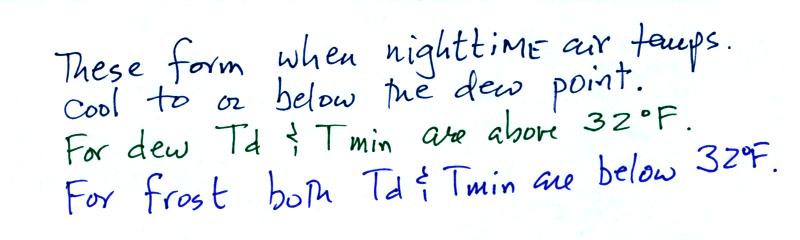 These form when nighttime air temps.
cool to or below the dew point.
For dew Td & Tmin are above 32°F.
For frost both Td & Tmin are below 32°F.